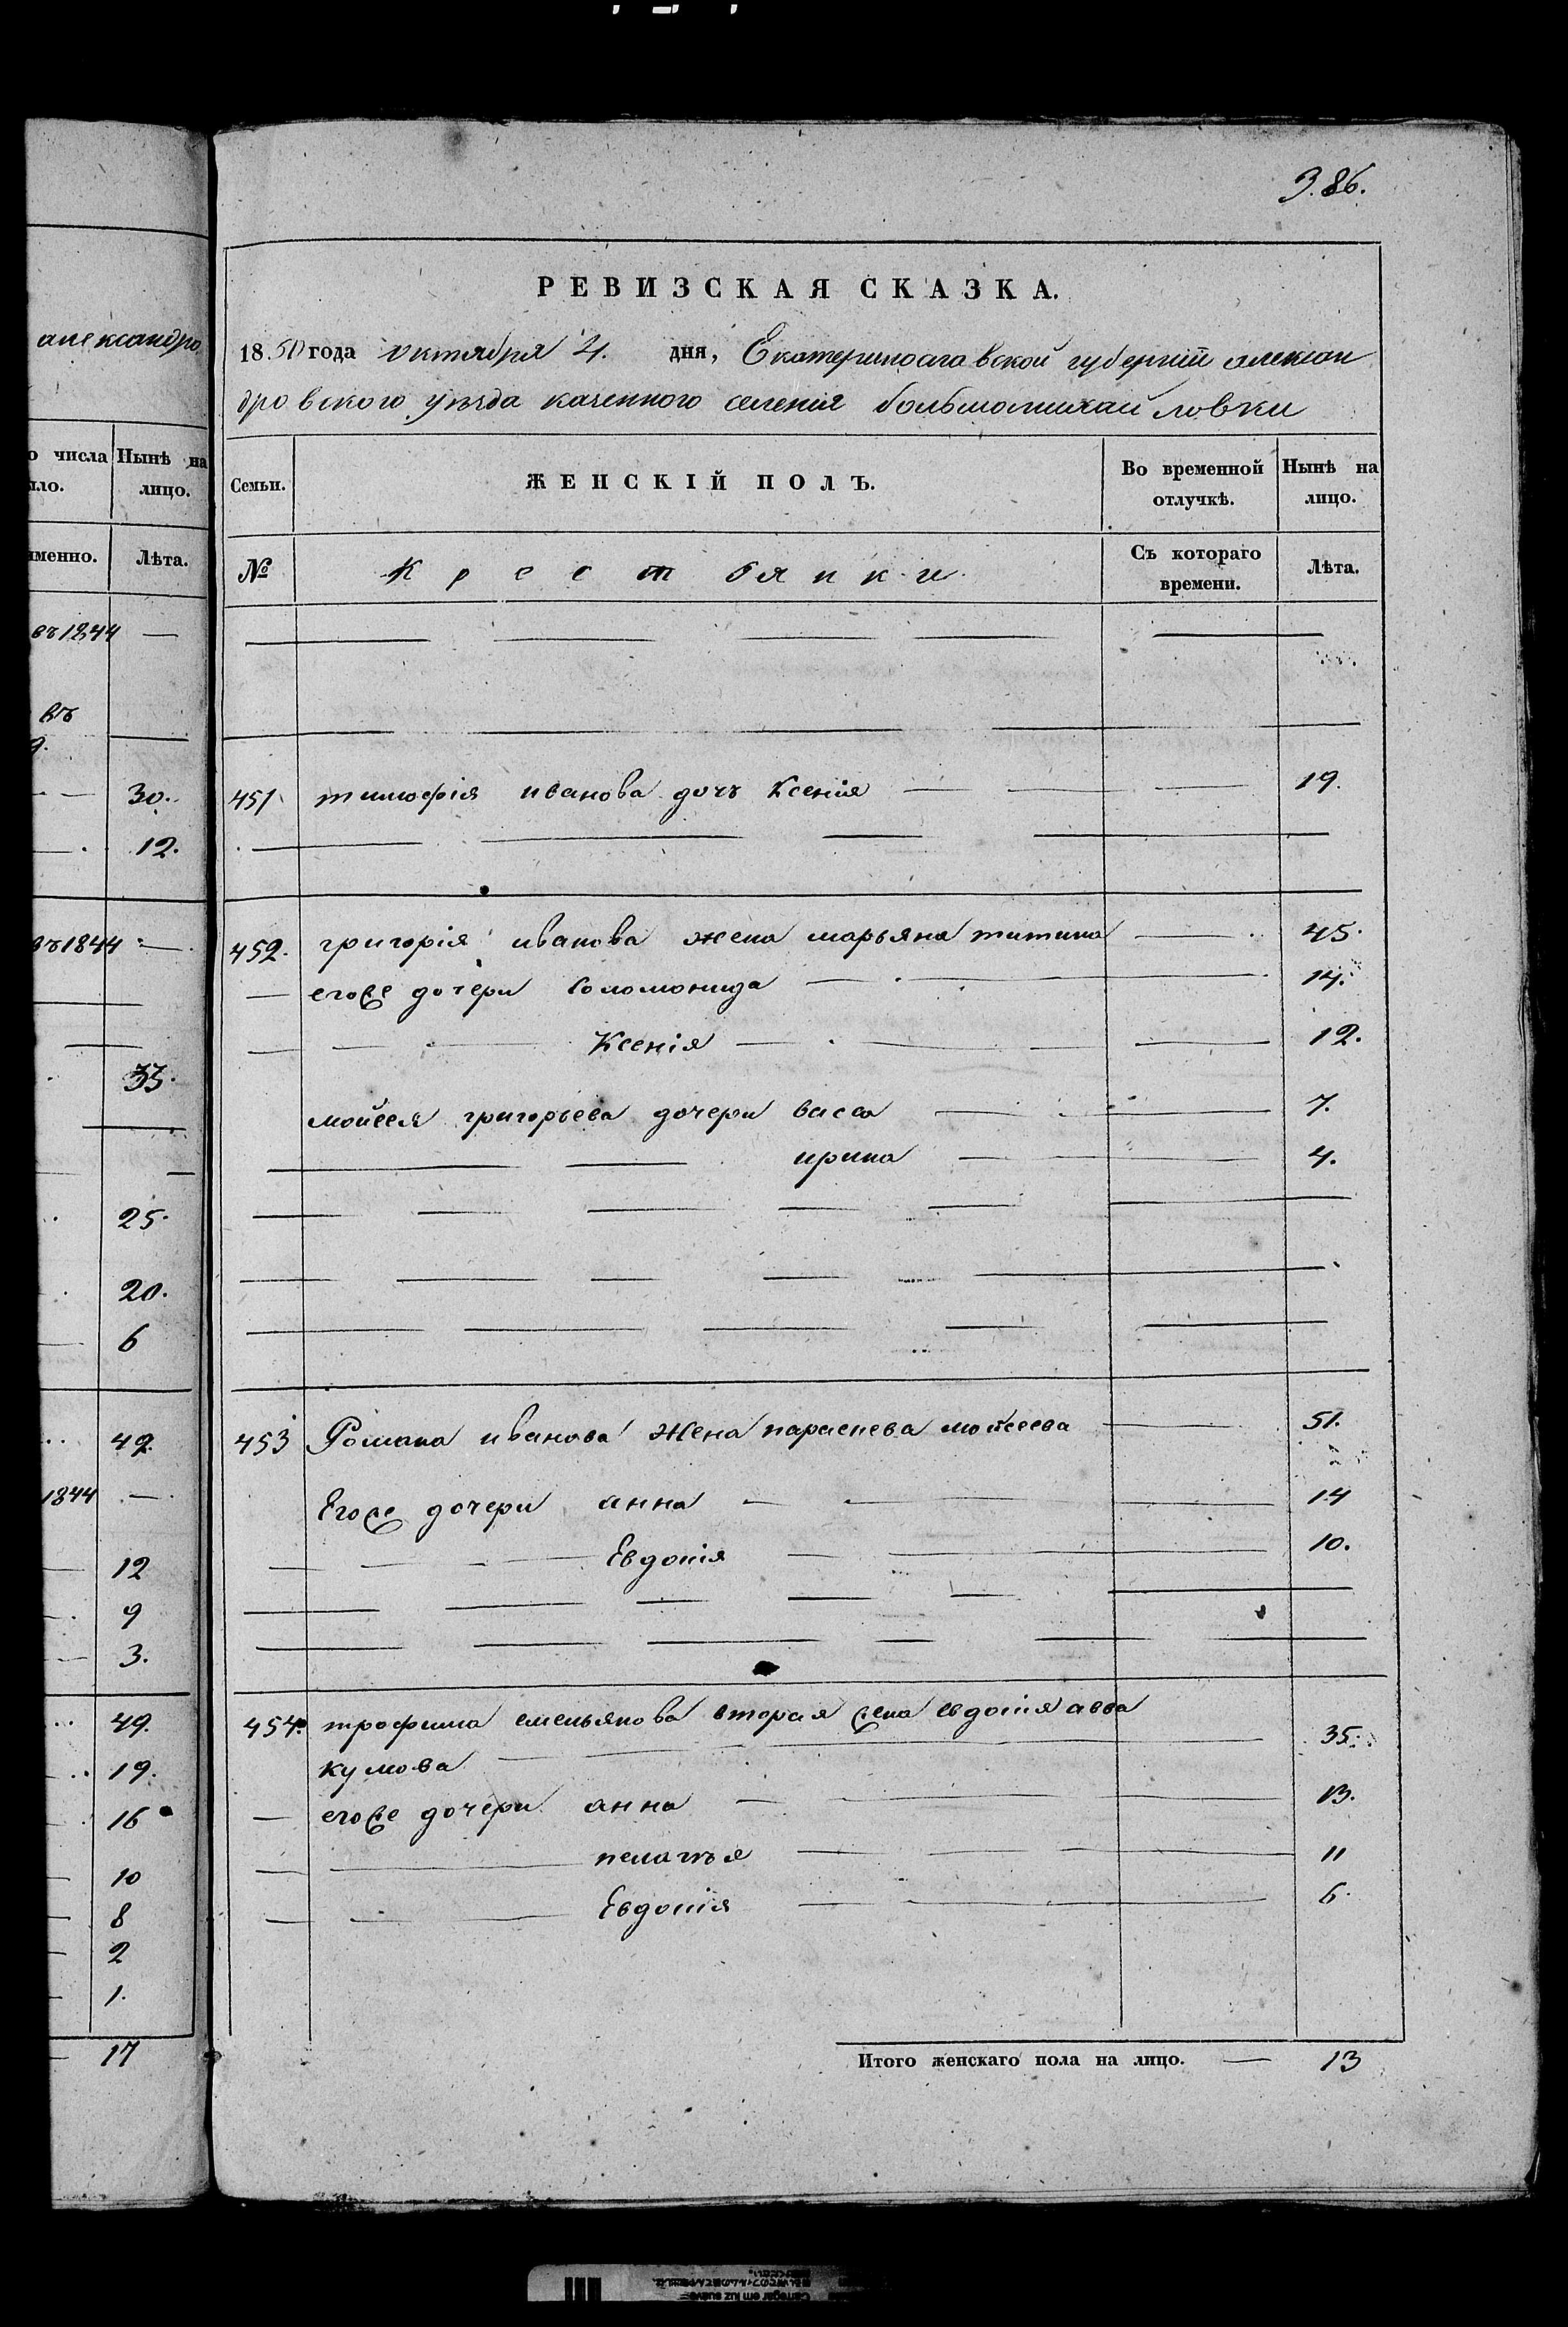 386.
РЕВИЗСКАЯ СКАЗКА.
александро
1850 года октября 4. дня, Екатеринославской губерніи алексан
дровского уѣзда казенного селенія большомихайловки
о числа Нынѣ на
ыло. лицо.
именно. Лѣта.
Семьи. ЖЕНСКІЙ ПОЛЪ. Во временной отлучкѣ. Нынѣ на лицо.
№ Крестьянки Съ котораго времени. Лѣта.
въ 1844 —
въ
9.
30.
12.
въ 1844 —
33.
25.
20.
6
49.
1844 —
12
9
3.
49.
19.
16
10
8
2
1.
17
451 тимофія иванова дочь Ксенія — — 19.
452. григорія иванова жена марьяна титина — 45.
— егоже дочери Соломонида — — 14.
— Ксенія — — 12.
мойсея григорьева дочери васса — — 7.
ирина — — 4.
453 Романа иванова жена параскева мойсеева — 51.
Егоже дочери анна — — 14
— Евдокія — — 10.
454. трофима емельянова вторая жена евдокія авва
кумова — — 35.
— егоже дочери анна — — 13.
— пелагѣя — — 11
— Евдокія — — 6.
Итого женскаго пола на лицо. — 13